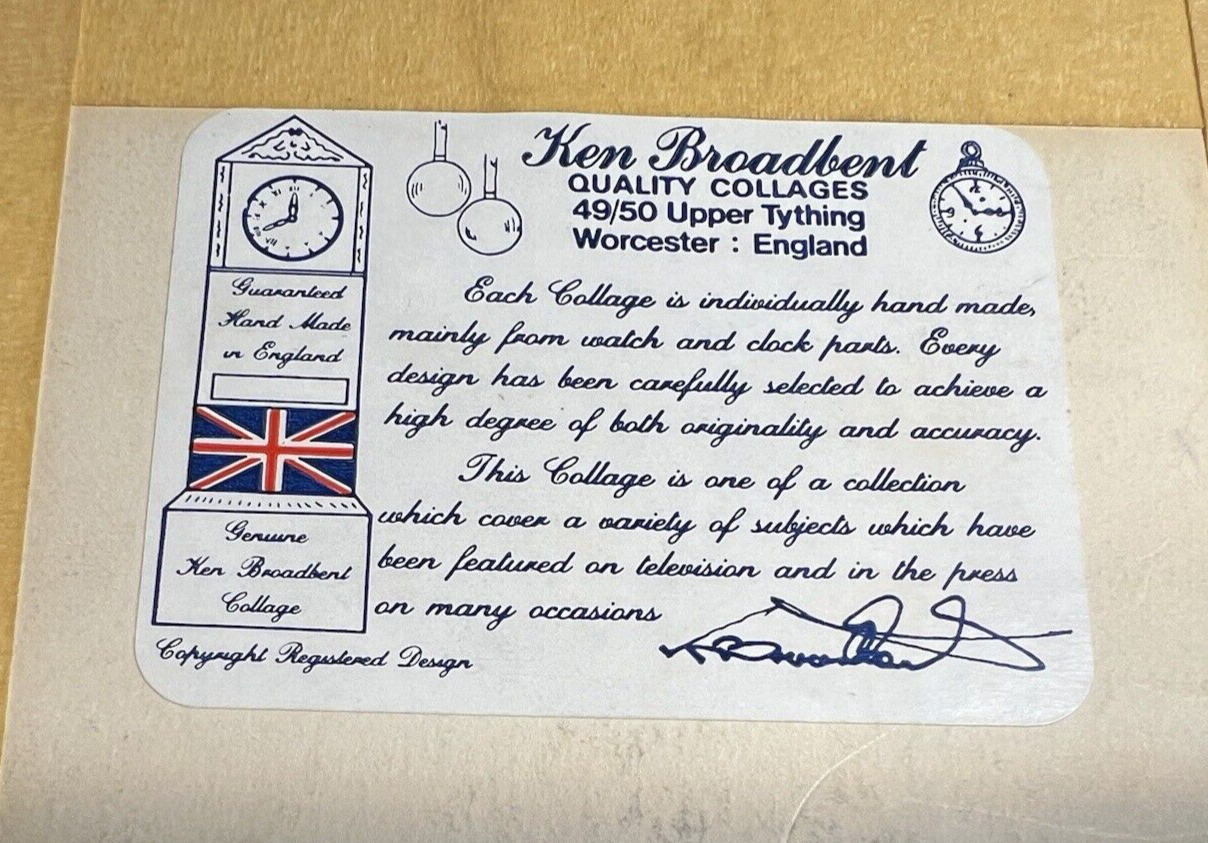 Ken Broadbent
QUALITY COLLAGES
49/50 Upper Tything
Worcester : England
Guaranteed
Hand Made
in England
Genuine
Ken Broadbent
Collage
Copyright Registered Design
Each Collage is individually hand made,
mainly from watch and clock parts. Every
design has been carefully selected to achieve a
high degree of both originality and accuracy.
This Collage is one of a collection
which cover a variety of subjects which have
been featured on television and in the press
on many occasions